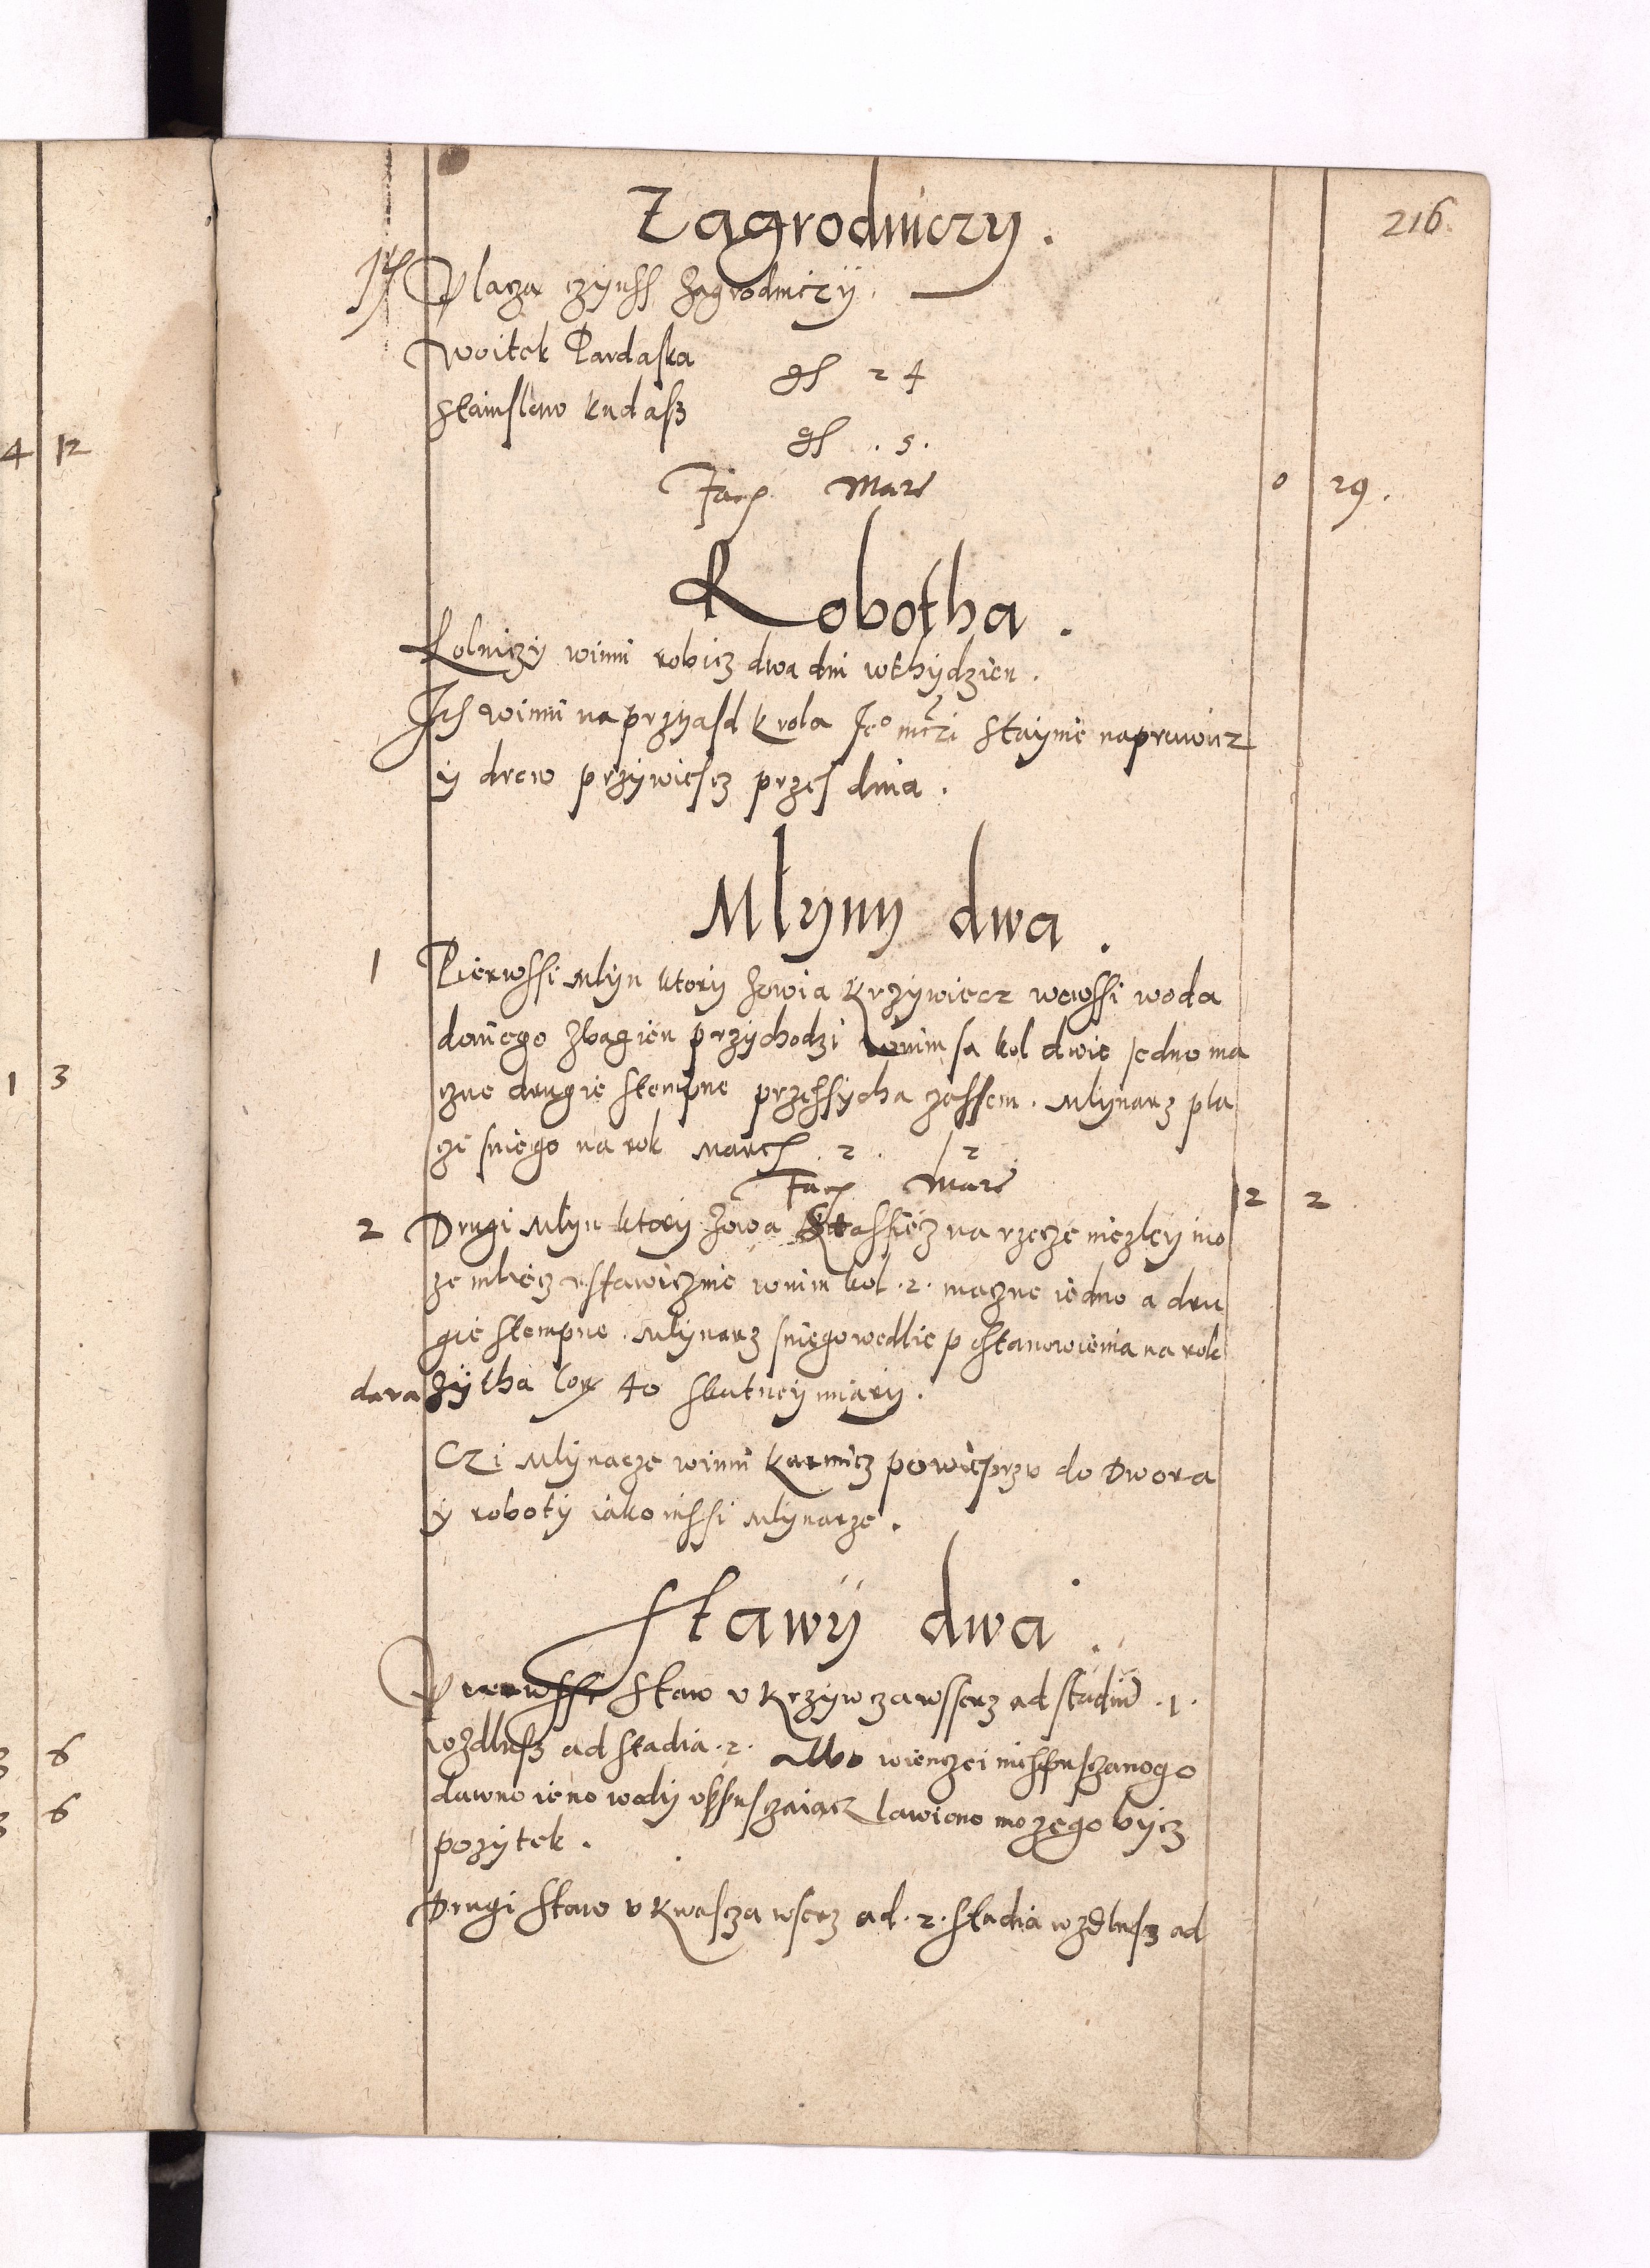 216.
Zagrodniczy.
Placza czynss Zagrodniczy.
Woitek Pardaska
gs 24
Stanislew Kudasz
gs .5.
Facz Marc 0 29.
Robotha.
Rolniczy winni robicz dwa dni wthydzien.
Jes winni na przyasd krola Jeo mczi staynie naprawicz
y drew przywiescz przes dnia.
Młyny dwa.
1 Pierwssi Mlyn ktory Zowia Krzywiecz wewssi woda
donego Zbagien przychodzi wnim sa kol dwie Jedno ma
czne drugie stempne przessycha czassem. Mlynarz pla
cze sniego na rok March .2.
Facz Marc 2 12 2
2 Drugi Mlyn ktory Zowa na rzecze niezley mo
ze mliecz ustawicznie wnim kol .2. maczne iedno a dru
gie stempne. Mlynarz sniego wedlie postanowienia na rok
dawa Zytha cor 40 skutney miary.
Czi Mlynarze winni karmicz powieprzu do Dwora
y roboty iako inssi Mlynarze.
Stawy dwa.
Pierwssi Staw u Krzywcza wsserz ad stadiu .1.
wzdlusz ad stadia .2. Albo wienczei niesspusczanogo
dawno ieno wody usspusczaiacz lawiono mozego bycz
pozytek.
Drugi Staw u Kwascza wserz ad .2. stadia wzdlusz ad
4 12
1 3
3 6
3 6